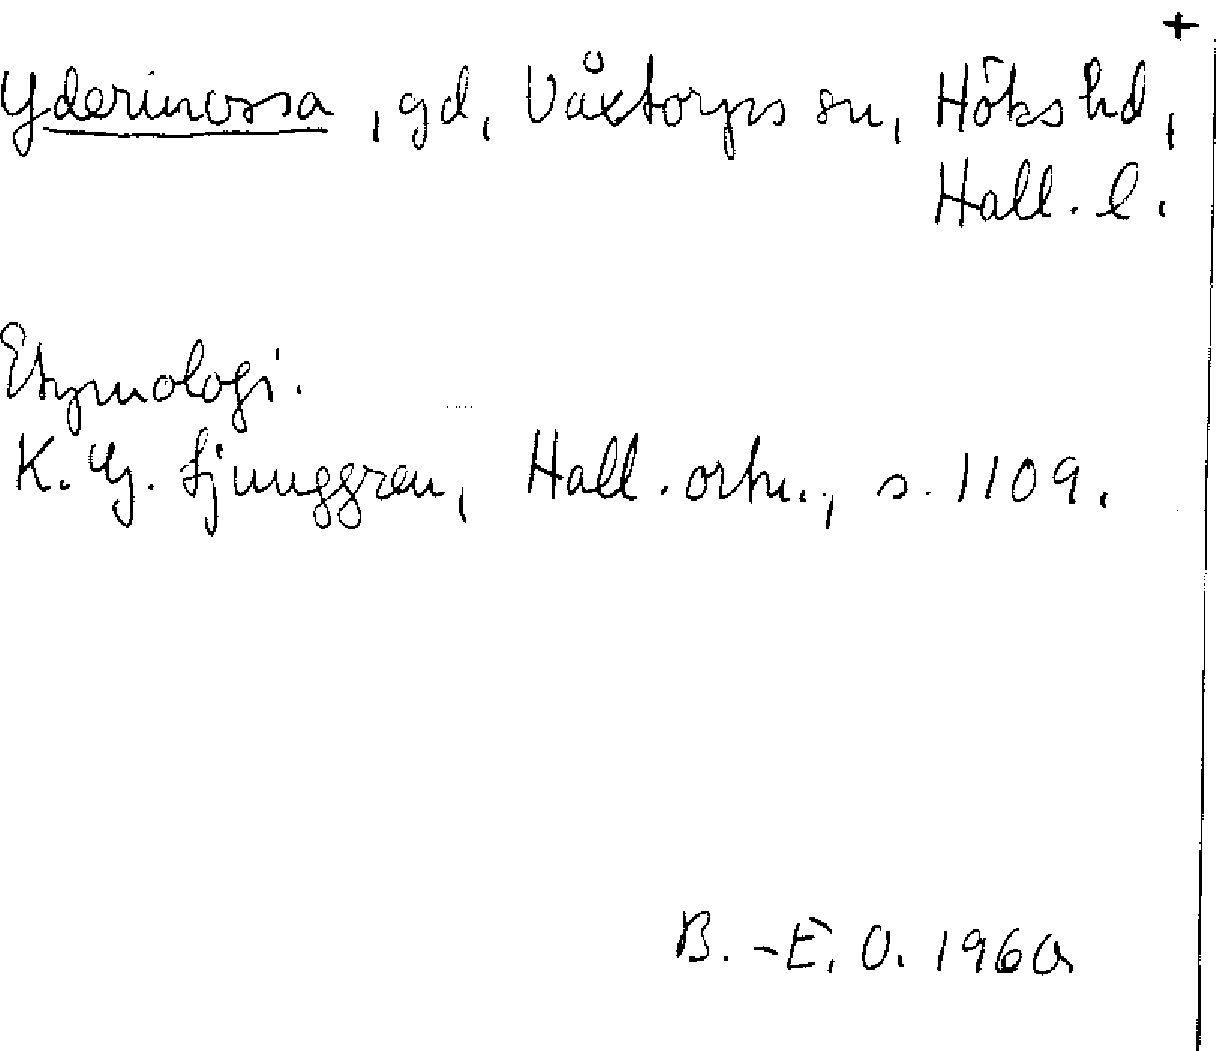 +
Ydermossa, gd, Våxtorps sn, Höks hd,
Hall. l.
Etymologi.
K. G. Ljunggren, Hall. ortn., s. 1109.
B.-E. O. 1960